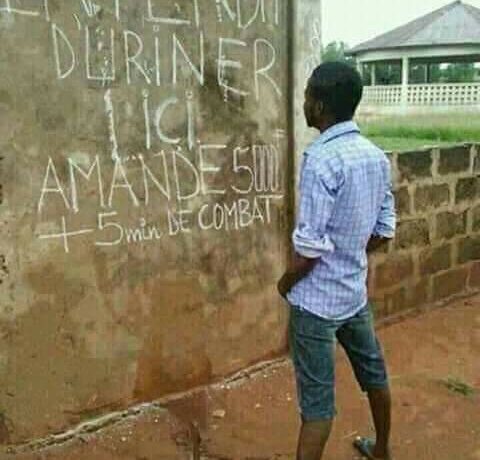 DURiNER
iCi
AMANDE 5000
+ 5min DE COMBAT